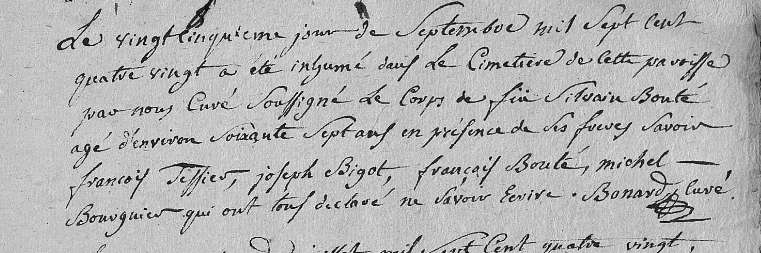 Le vingt cinquieme jour de Septembre mil Sept Cent
quatre vingt a été inhumé dans Le Cimetiere de Cette paroisse
par nous Curé Soussigné Le Corps de feu Silvain Bouté
agé d'environ Soixante Sept ans en présence de Ses freres Savoir
francois Tessier, joseph Bigot, françois Bouté, michel —
Bourguier qui ont tous declaré ne Savoir Ecrire. Bonard Curé.
juillet mil Sept Cent quatre vingt,